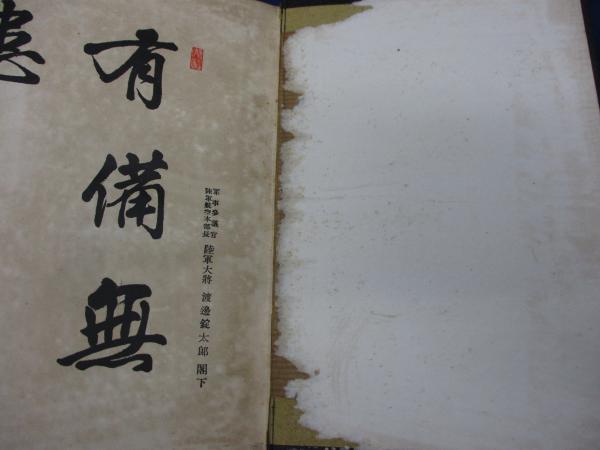 軍事參議官
陸軍航空本部長
陸軍大將 渡邊錠太郎 閣下
有備無
患